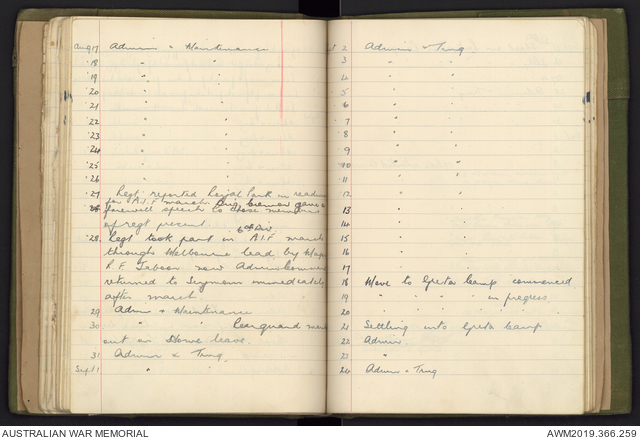 Aug 17 Admin & Maintenance
18 " "
19 " "
20 " "
21 " "
22 " "
23 " "
24 " "
25 " "
26 " "
27 Regt reported Royal Park in readiness
for A.I.F march. Brig gave a
farewell speech to those members
of regt present
28. Regt took part in 6th Div A.I.F march
through Melbourne lead by Major
R. F. Jaboor now Admin Command
returned to Seymour immediately
after march
29 Admin & Maintenance
30 " " Rearguard
out on Home leave.
31 Admin & Trng.
Sept 1 " "
2 Admin & Trng
3 " "
4 " "
5 " "
6 " "
7 " "
8 " "
9 " "
10 " "
11 " "
12 " "
13 " "
14 " "
15 " "
16 " "
17 " "
18 Move to Greta Camp commenced.
19 " " " " in progress.
20 " " " " " "
21 Settling into Greta Camp
22 Admin.
23 "
24 Admin & Trng
AUSTRALIAN WAR MEMORIAL
AWM2019.366.259